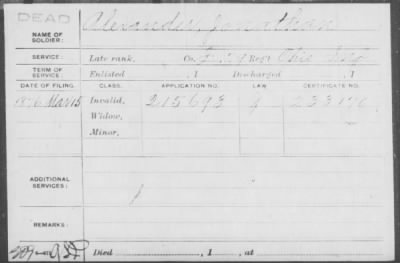 DEAD
NAME OF SOLDIER: Alexander, Jonathan
SERVICE: Late rank, Co. Reg't Ohio Inf
TERM OF SERVICE: Enlisted , 1 Discharged , 1
DATE OF FILING. CLASS. APPLICATION NO. LAW CERTIFICATE NO.
1876 Mar 15 Invalid, 215693
Widow,
Minor,
ADDITIONAL SERVICES:
REMARKS:
Died , 1 , at